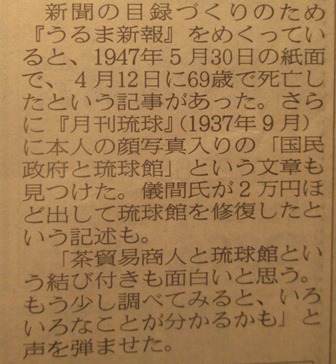 新聞の目録づくりのため
『うるま新報』をめくってい
ると、1947年5月30日の紙面
で、4月12日に69歳で死亡し
たという記事があった。さら
に『月刊琉球』(1937年9月)
に本人の顔写真入りの「国民
政府と琉球館」という文章も
見つけた。儀間氏が2万円ほ
ど出して琉球館を修復したと
いう記述も。
「茶貿易商人と琉球館とい
う結び付きも面白いと思う。
もう少し調べてみると、いろ
いろなことが分かるかも」と
声を弾ませた。